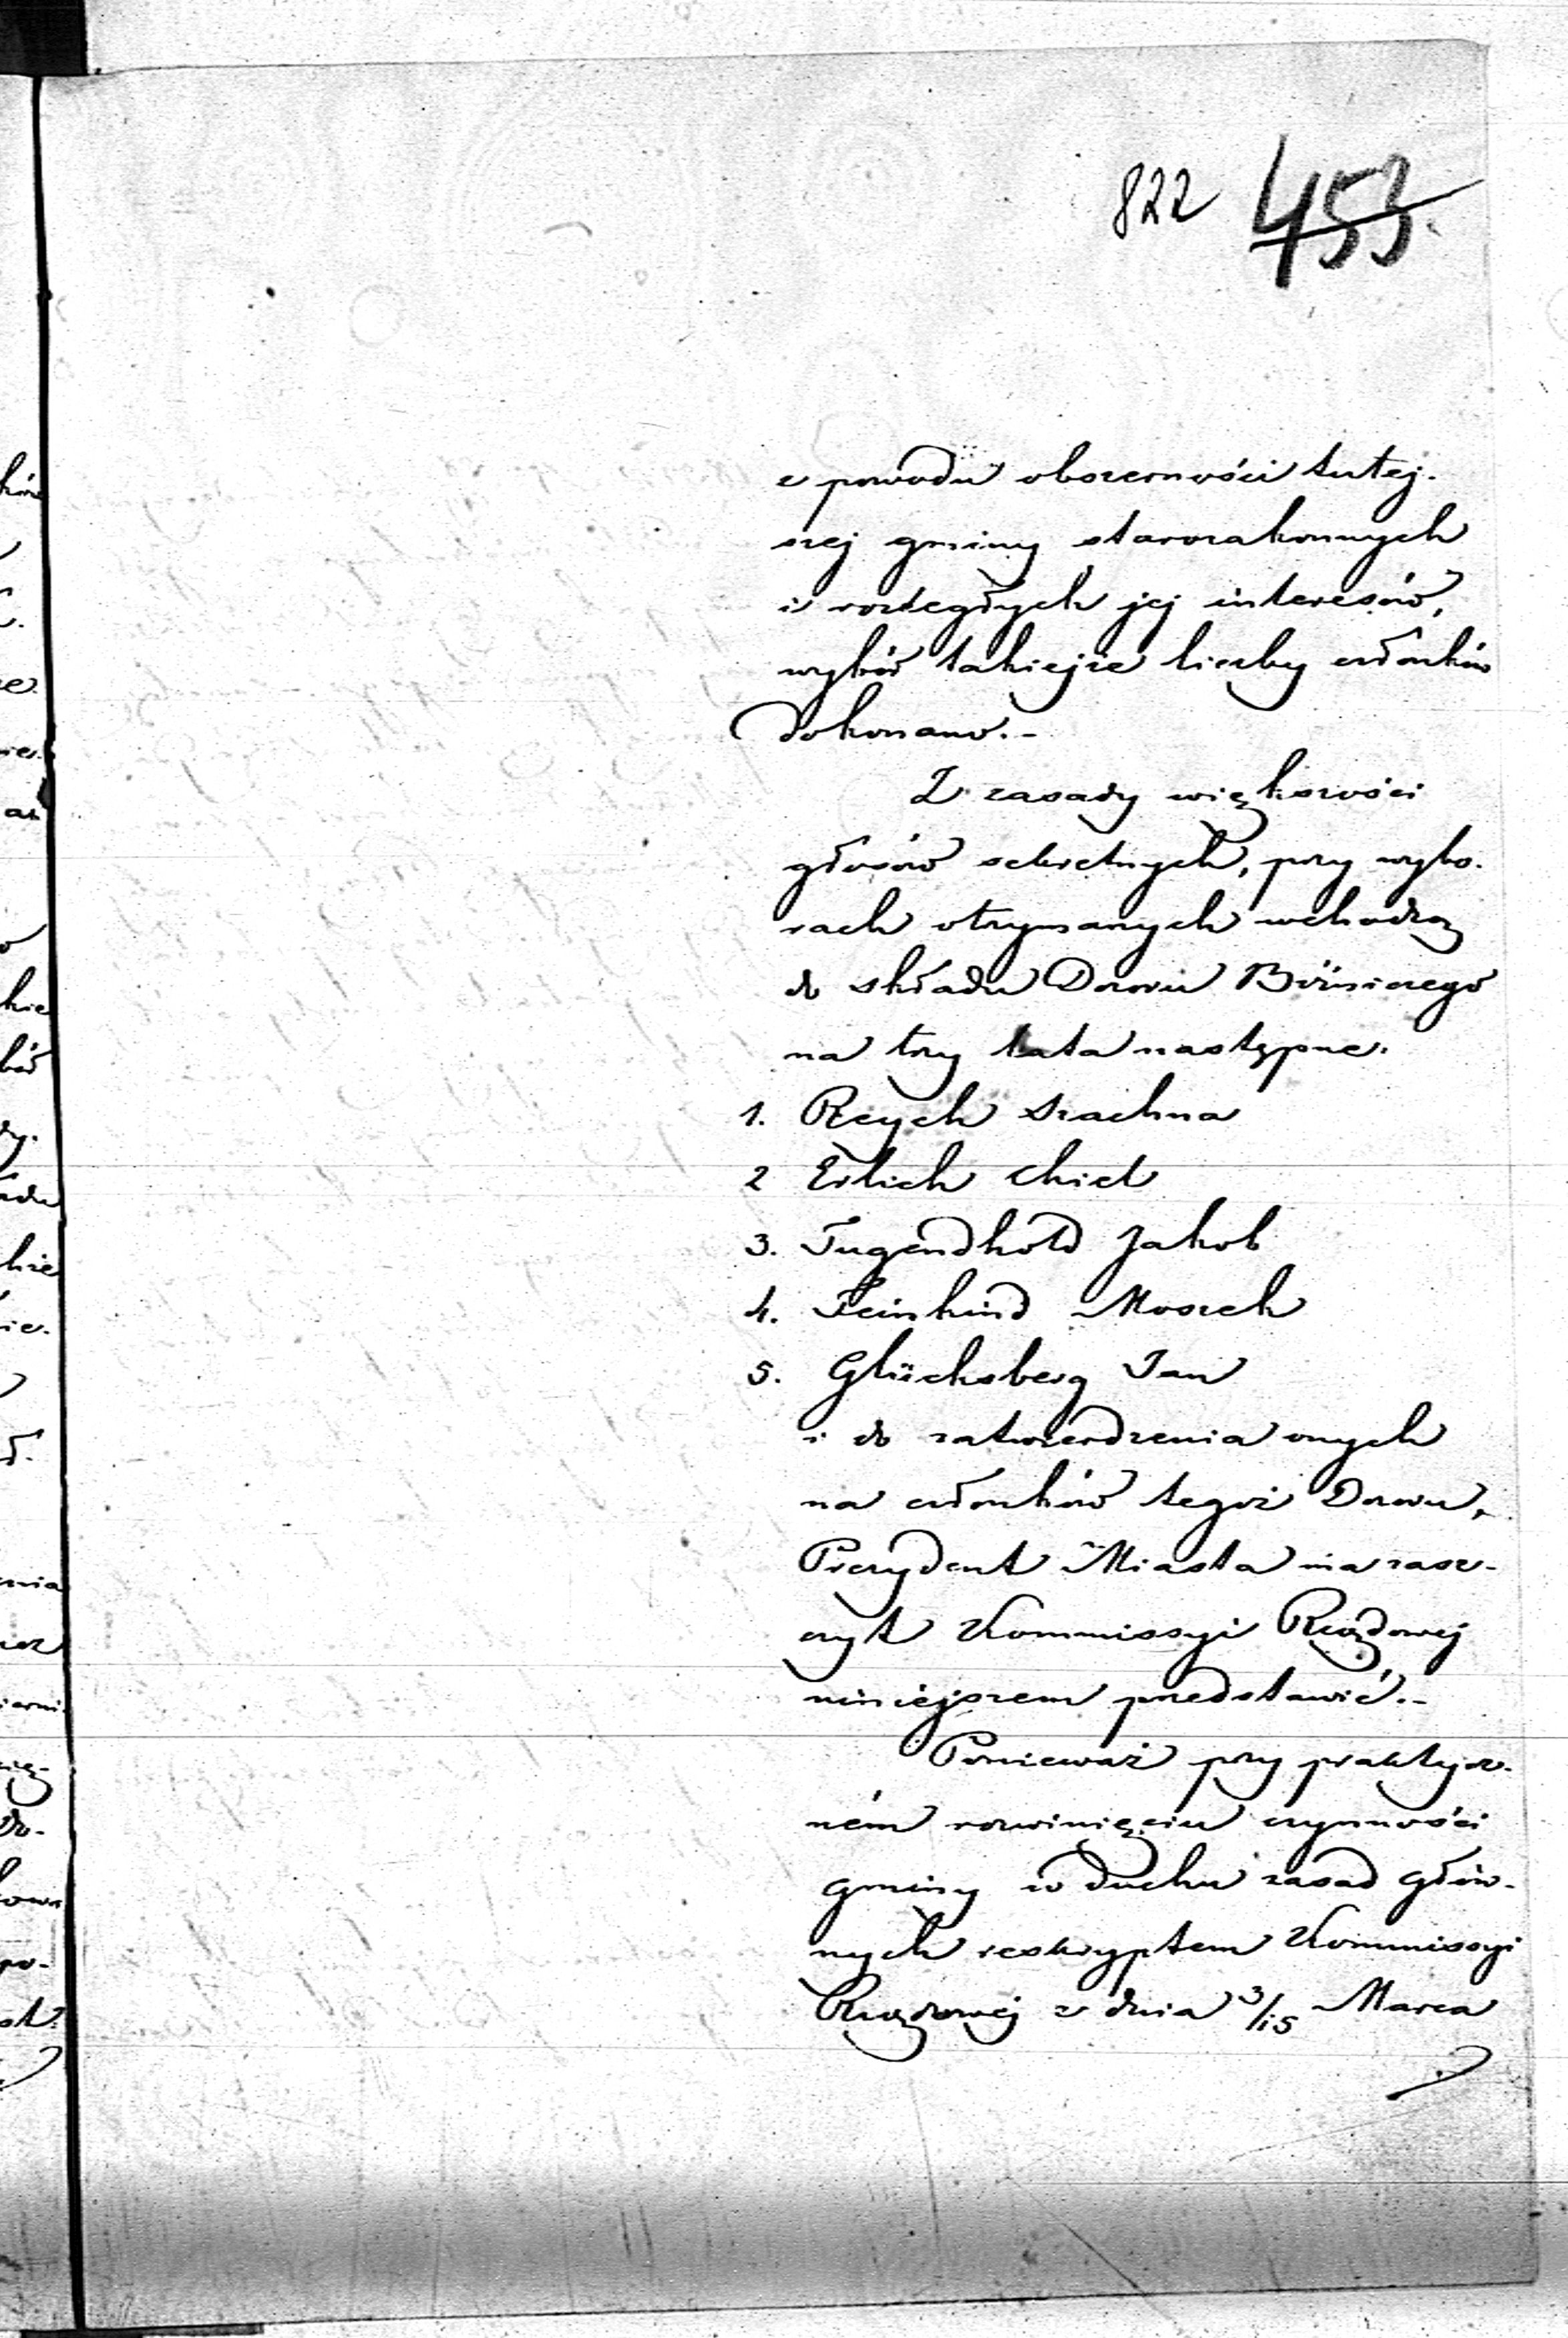 822 453.
z powodu obszerności tutej-
szej gminy starozakonnych
i rozległych jej interesów,
wybór takiejże liczby członków
dokonano.-
Z zasady większości
głosów sekretnych, przy wybo-
rach otrzymanych wchodzą
do składu Dozoru Bóżniczego
na trzy lata następne.
1. Reych Szachna
2 Erlich Chiel
3. Tugendhold Jakob
4. Feinkind Moszek
5. Glücksberg Jan
i do zatwierdzenia onych
na członków tegoż Dozoru,
Prezydent Miasta ma zasz-
czyt Kommissyi Rządowej
niniejszem przedstawić.-
Ponieważ przy praktycz-
ném rozwinięciu czynności
gminy w duchu zasad głów-
nych reskryptem Kommissyi
Rządowej z dnia 3/15 Marca